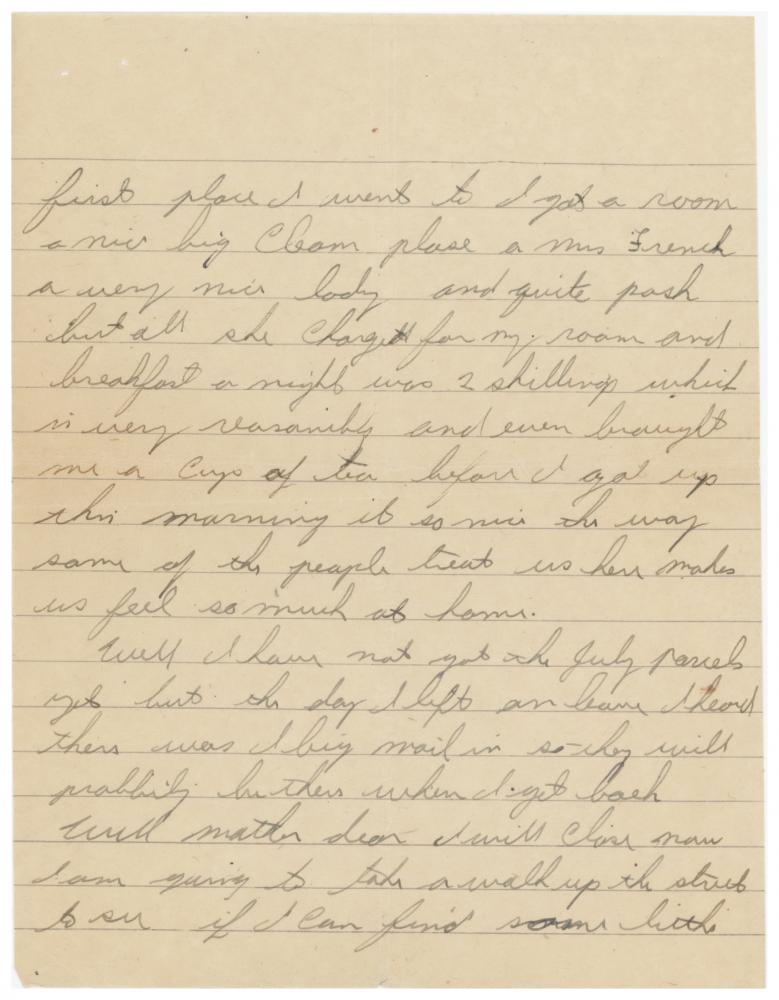 first place I went to I got a room
a nice big Clean plase a Mrs French
a very nice lady and quite posh
but all she Charged for my room and
breakfast a night was 2 shillings which
is very reasonibly and even brought
me a Cup of tea before I got up
this morning it so nice the way
some of the people treat us here makes
us feel so much at home.
Well I have not got the July parcels
yet but the day I left on leave I heard
there was I big mail in so they will
probbily be there when I get back
Well mother dear I will Close now
I am going to take a walk up the street
to see if I Can find some little